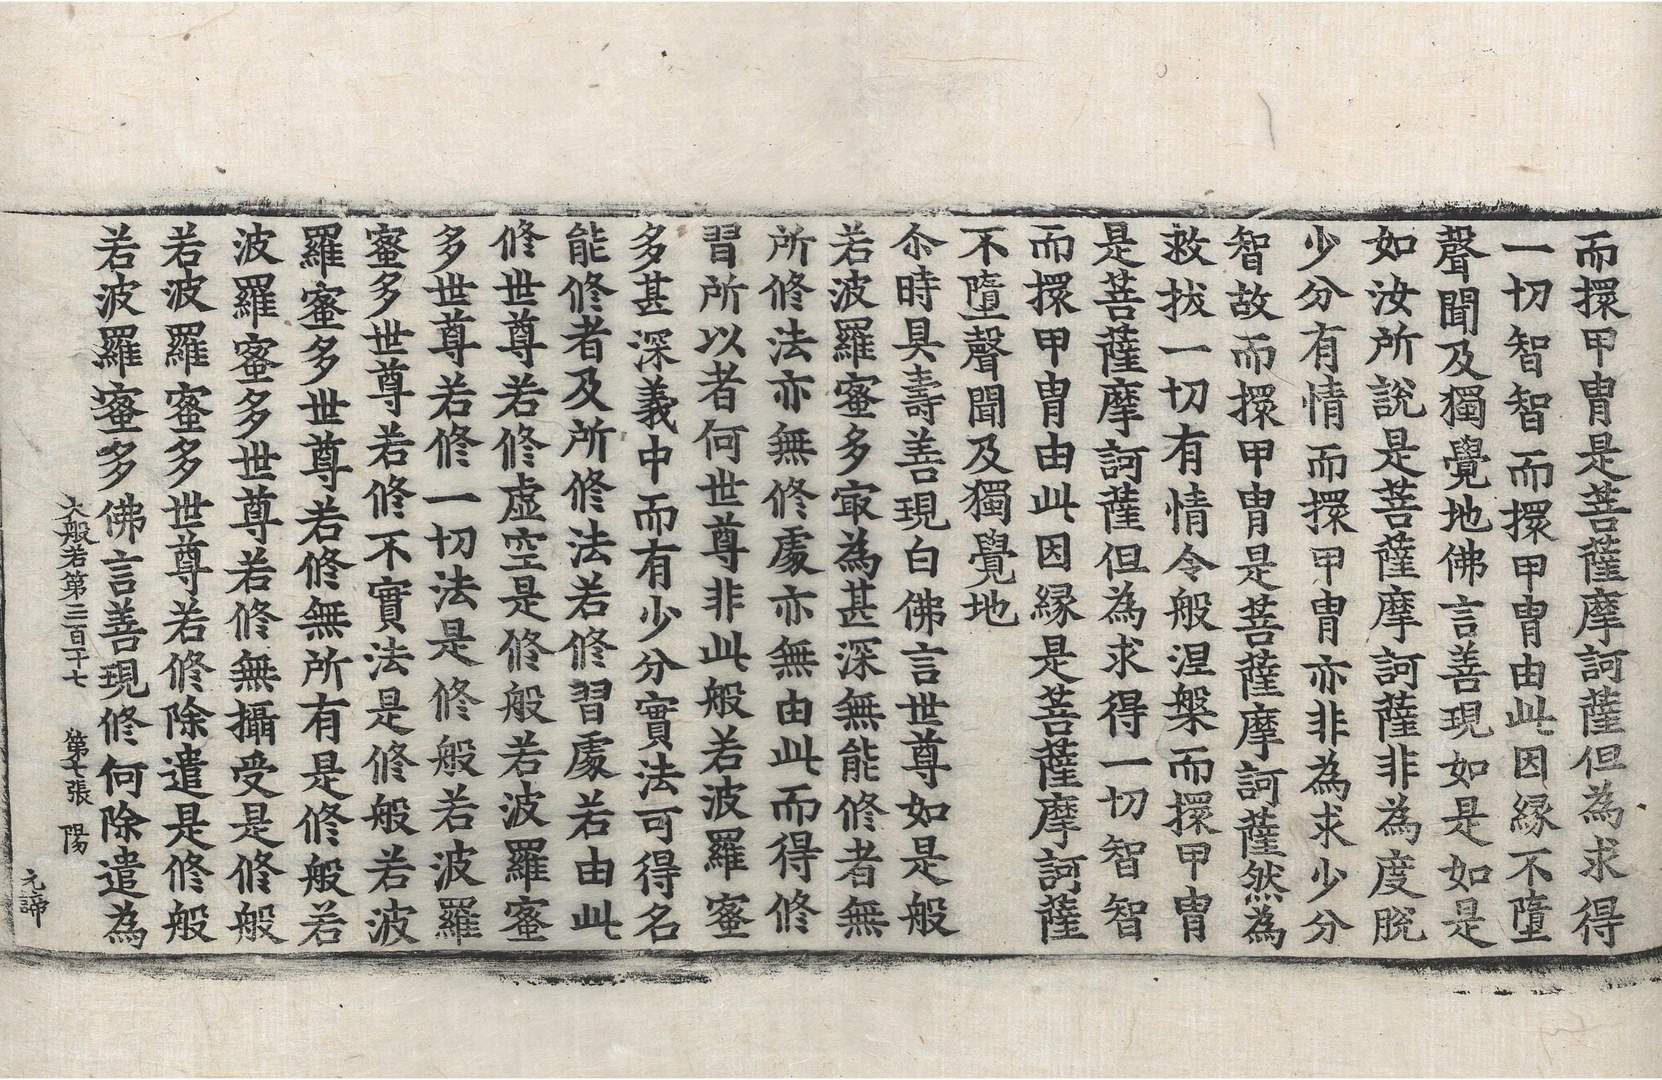 而擐甲冑是菩薩摩訶薩但為求得
一切智智而擐甲冑由此因緣不墮
聲聞及獨覺地佛言善現如是如是
如汝所說是菩薩摩訶薩非為度脫
少分有情而擐甲冑亦非為求少分
智故而擐甲冑是菩薩摩訶薩然為
救拔一切有情令般涅槃而擐甲冑
是菩薩摩訶薩但為求得一切智智
而擐甲冑由此因緣是菩薩摩訶薩
不墮聲聞及獨覺地
尒時具壽善現白佛言世尊如是般
若波羅蜜多冣為甚深無能修者無
所修法亦無修處亦無由此而得修
習所以者何世尊非此般若波羅蜜
多甚深義中而有少分實法可得名
能修者及所修法若修習處若由此
修世尊若修虛空是修般若波羅蜜
多世尊若修一切法是修般若波羅
蜜多世尊若修不實法是修般若波
羅蜜多世尊若修無所有是修般若
波羅蜜多世尊若修無攝受是修般
若波羅蜜多世尊若修除遣是修般
若波羅蜜多佛言善現修何除遣為
大般若第三百十七 第七張 陽
元諦